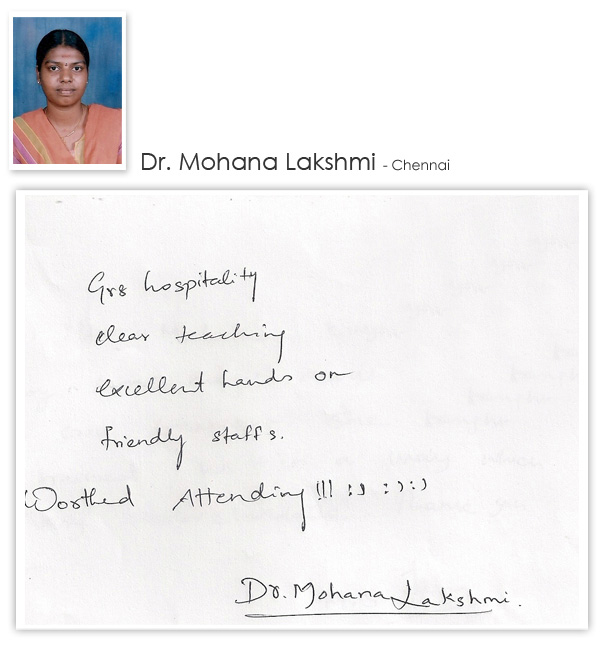 Dr. Mohana Lakshmi - Chennai
Gr8 hospitality
clear teaching
excellent hands on
friendly staffs.
Worthed Attending!!! :) :):)
Dr. Mohana Lakshmi.